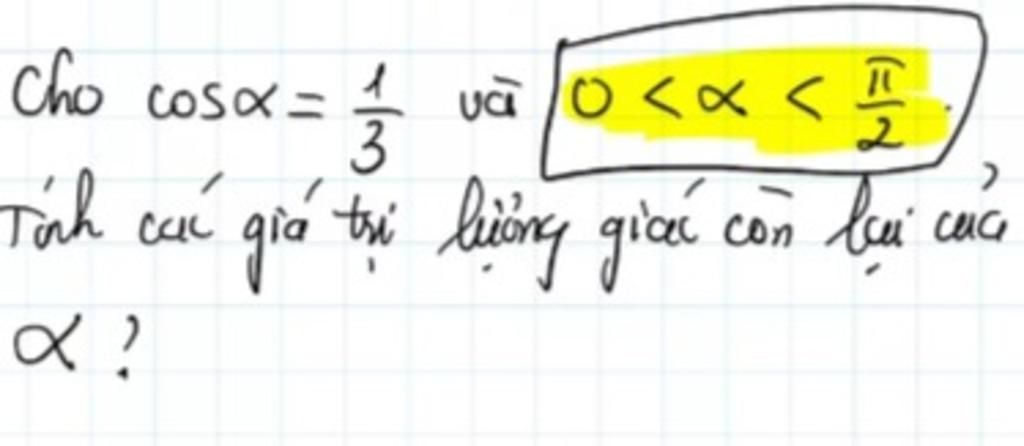 Cho cosα = 1/3 và 0 < α < π/2.
Tính các giá trị lượng giác còn lại của
α ?